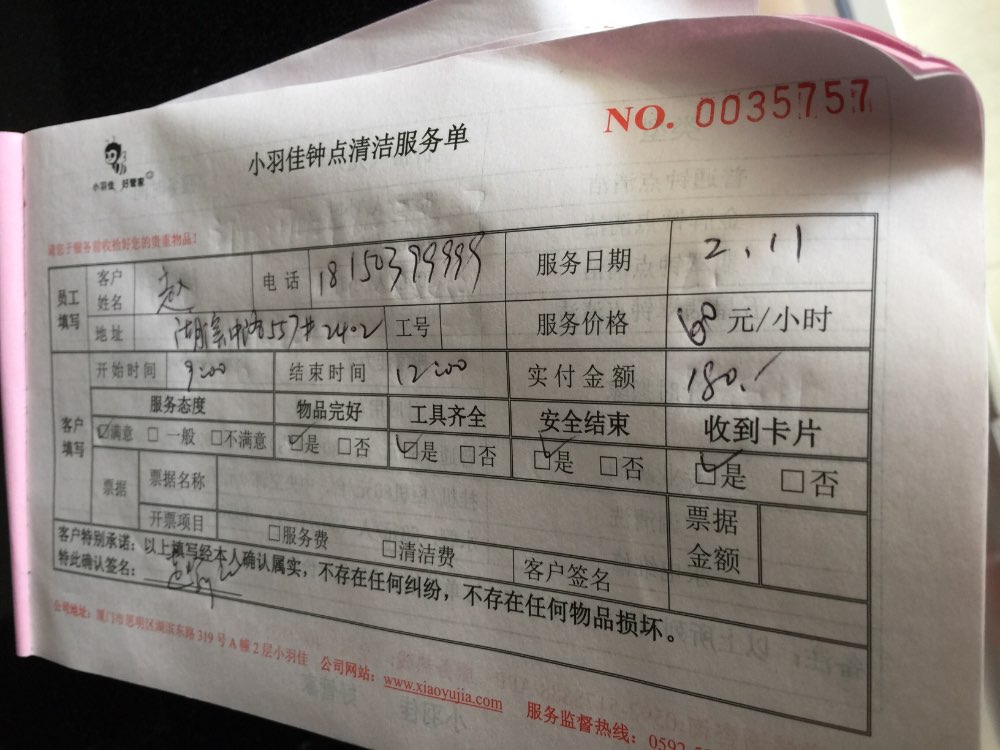 NO. 0035757
小羽佳钟点清洁服务单
小羽佳 好管家
请您于服务前收捡好您的贵重物品！
员工填写 客户姓名 赵 电话 18150399999 服务日期 2.11
地址 湖滨中路557#2402 工号 服务价格 60 元/小时
客户填写 开始时间 9:00 结束时间 12:00 实付金额 180.
服务态度 物品完好 工具齐全 安全结束 收到卡片
☑满意 □一般 □不满意 ☑是 □否 ☑是 □否 ☑是 □否 ☑是 □否
票据 票据名称 票据金额
开票项目 □服务费 □清洁费 客户签名
客户特别承诺：以上填写经本人确认属实，不存在任何纠纷，不存在任何物品损坏。
特此确认签名：
公司地址：厦门市思明区湖滨东路319号A幢2层小羽佳 公司网站：www.xiaoyujia.com 服务监督热线：0592-5